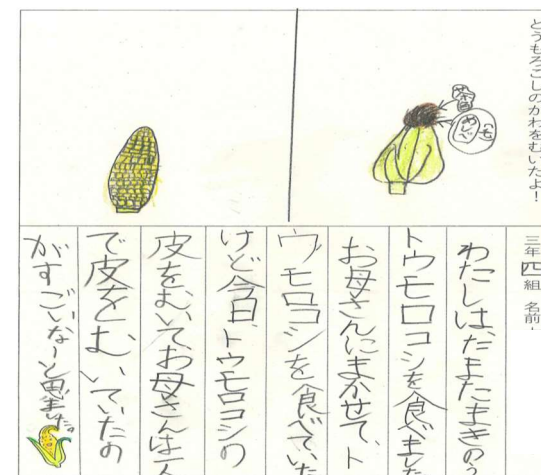 とうもろこしのかわをむいたよ！
三年四組 名前
ひげ
めしべ
わたしは、たまたまきのう
トウモロコシを食べました
お母さんにまかせて、ト
ウモロコシを食べていた
けど今日、トウモロコシの
皮をむいてお母さんは一人
で皮をむいていたの
がすごいなーと思いました。